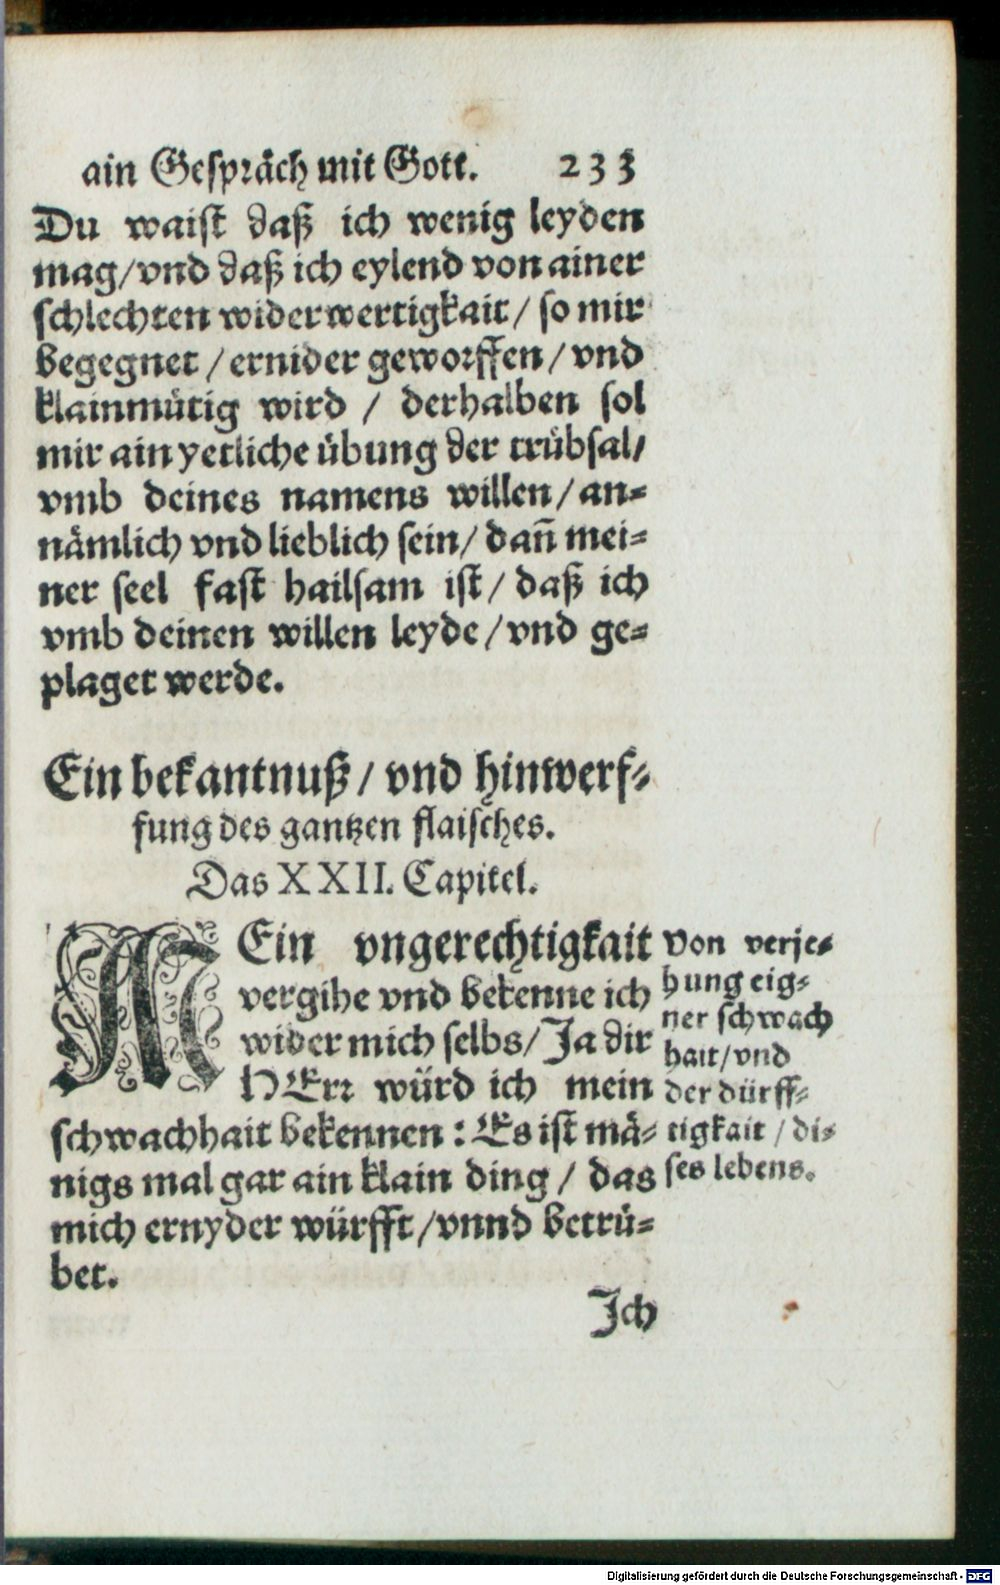 ain Gespräch mit Gott. 233
Du waist daß ich wenig leyden
mag/vnd daß ich eylend von ainer
schlechten widerwertigkait/ so mir
begegnet / ernider geworffen/ vnd
klainmütig wird / derhalben sol
mir ain yetliche übung der trübsal/
vmb deines namens willen/ an-
nämlich vnd lieblich sein/ dañ mei-
ner seel fast hailsam ist/ daß ich
vmb deinen willen leyde/vnd ge-
plaget werde.
Ein bekantnuß/ vnd hinwerf-
fung des gantzen flaisches.
Das XXII. Capitel.
MEin vngerechtigkait
vergihe vnd bekenne ich
wider mich selbs/ Ja dir
HErr würd ich mein
schwachhait bekennen: Es ist mä-
nigs mal gar ain klain ding / das
mich ernyder würfft/vnnd betrü-
bet.
Von verje-
hung eig-
ner schwach
hait/vnd
der dürff-
tigkait / di-
ses lebens.
Ich
Digitalisierung gefördert durch die Deutsche Forschungsgemeinschaft - DFG